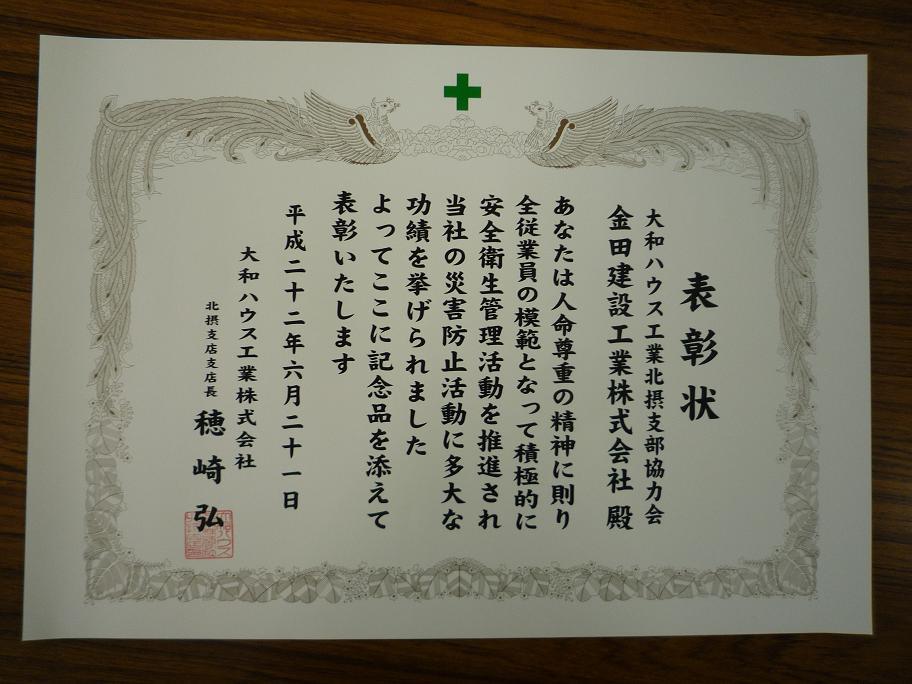 表彰状
大和ハウス工業北摂支部協力会
金田建設工業株式会社 殿
あなたは人命尊重の精神に則り
全従業員の模範となって積極的に
安全衛生管理活動を推進され
当社の災害防止活動に多大な
功績を挙げられました
よってここに記念品を添えて
表彰いたします
平成二十二年六月二十一日
大和ハウス工業株式会社
北摂支店支店長 穂崎弘